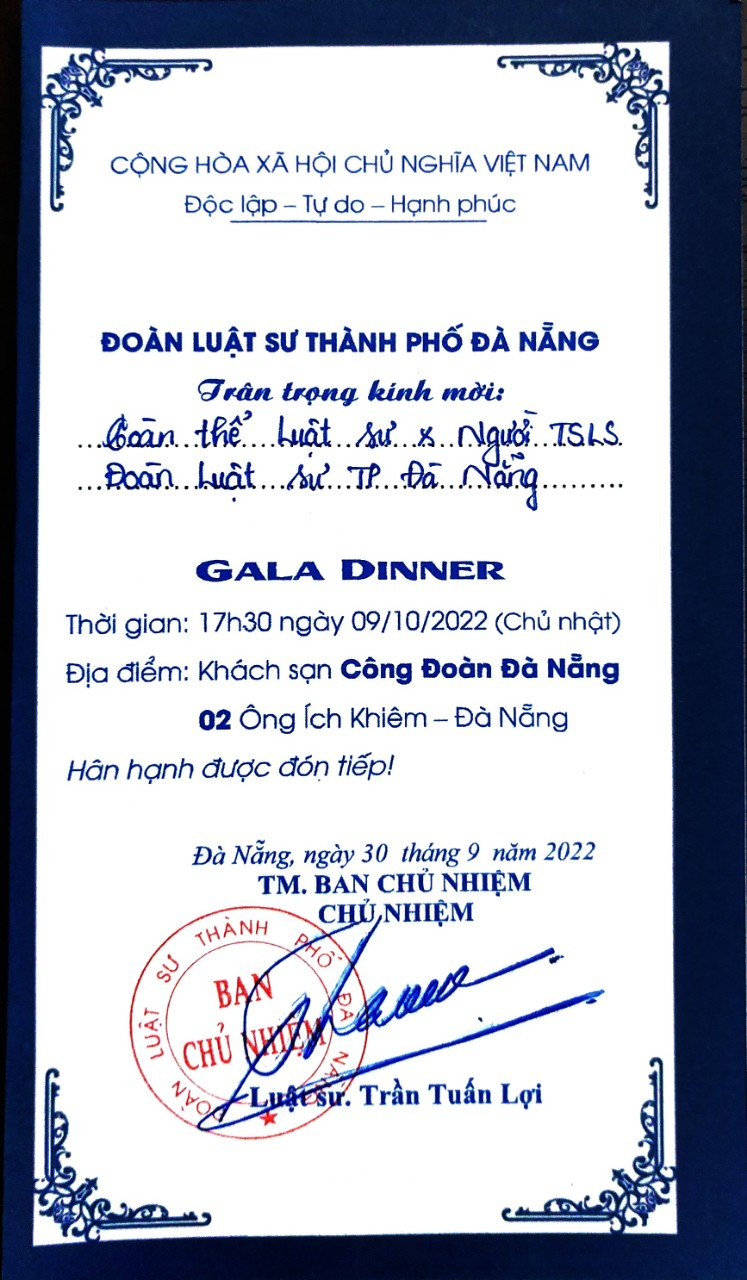 CỘNG HÒA XÃ HỘI CHỦ NGHĨA VIỆT NAM
Độc lập – Tự do – Hạnh phúc
ĐOÀN LUẬT SƯ THÀNH PHỐ ĐÀ NẴNG
Trân trọng kính mời:
thể Luật sư Người TSLS
Đoàn Luật sư TP Đà Nẵng
GALA DINNER
Thời gian: 17h30 ngày 09/10/2022 (Chủ nhật)
Địa điểm: Khách sạn Công Đoàn Đà Nẵng
02 Ông Ích Khiêm – Đà Nẵng
Hân hạnh được đón tiếp!
Đà Nẵng, ngày 30 tháng 9 năm 2022
TM. BAN CHỦ NHIỆM
CHỦ NHIỆM
ĐOÀN LUẬT SƯ THÀNH PHỐ ĐÀ NẴNG
BAN
CHỦ NHIỆM
Luật sư. Trần Tuấn Lợi